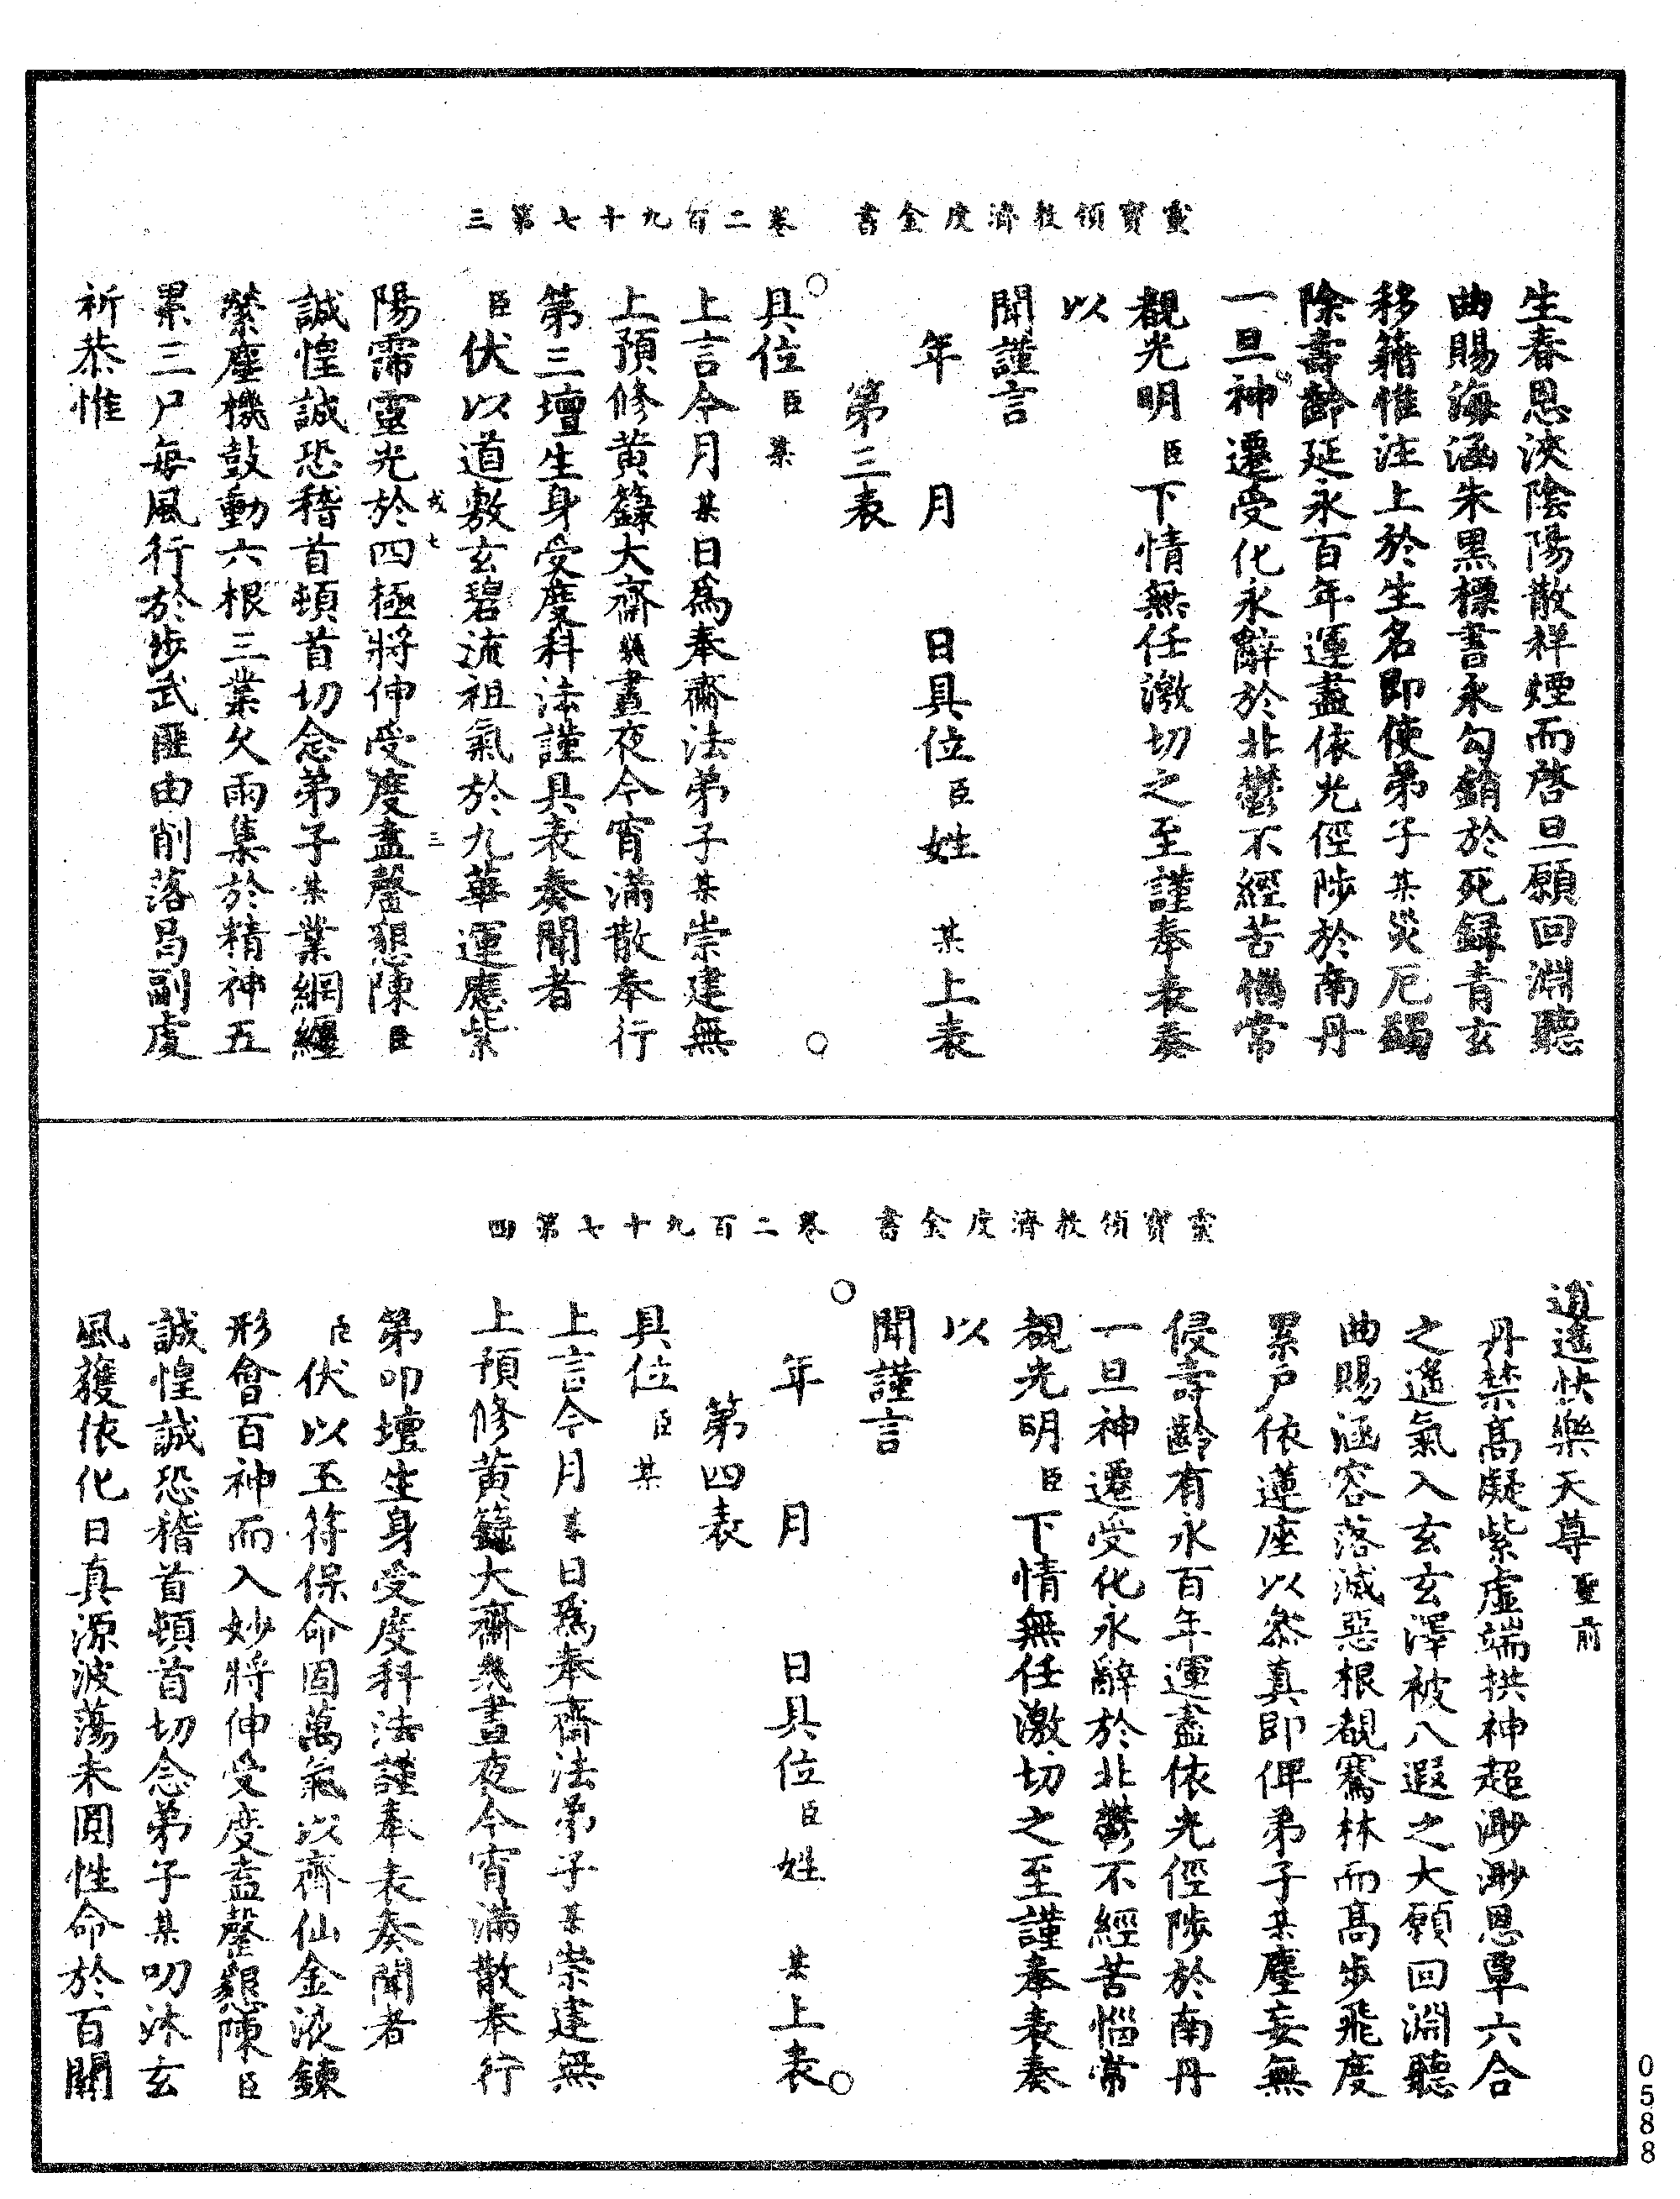 靈寶領教濟度金書　卷二百九十七第三
生春恩浹陰陽散祥煙而啓旦願回淵聽
曲賜海涵朱黑標書永勾銷於死録青玄
移籍惟注上於生名即使弟子某災厄蠲
除壽齡延永百年運盡依光徑陟於南丹
一旦神遷受化永辭於北鬱不經苦惱常
覩光明臣下情無任激切之至謹奉表奏
以
聞謹言
年　月　日具位臣姓　某上表
第三表
具位臣某
上言今月某日爲奉齋法弟子某崇建無
上預修黄籙大齋幾晝夜今宵滿散奉行
第三壇生身受度科法謹具表奏聞者
臣伏以道敷玄碧流祖氣於九華運應紫
陽霈靈光於四極將伸受度盍罄懇陳臣
誠惶誠恐稽首頓首切念弟子某業網纏
縈塵機鼓動六根三業久雨集於精神五
累三尸每風行於步武匪由削落曷副虔
祈恭惟
靈寶領教濟度金書　卷二百九十七第四
逍遥快樂天尊聖前
丹禁高凝紫虚端拱神超渺渺恩覃六合
之遥氣入玄玄澤被八遐之大願回淵聽
曲賜涵容落滅惡根覩騫林而高步飛度
累户依蓮座以叅真即俾弟子某塵妄無
侵壽齡有永百年運盡依光徑陟於南丹
一旦神遷受化永辭於北鬱不經苦惱常
覩光明臣下情無任激切之至謹奉表奏
以
聞謹言
年　月　日具位臣姓　某上表
第四表
具位臣某
上言今月某日爲奉齋法弟子某崇建無
上預修黄籙大齋幾晝夜今宵滿散奉行
第四壇生身受度科法謹奉表奏聞者
臣伏以玉符保命固萬氣以齊仙金液鍊
形會百神而入妙將伸受度盍罄懇陳臣
誠惶誠恐稽首頓首切念弟子某叨沐玄
風獲依化日真源波蕩未圓性命於百關
0588